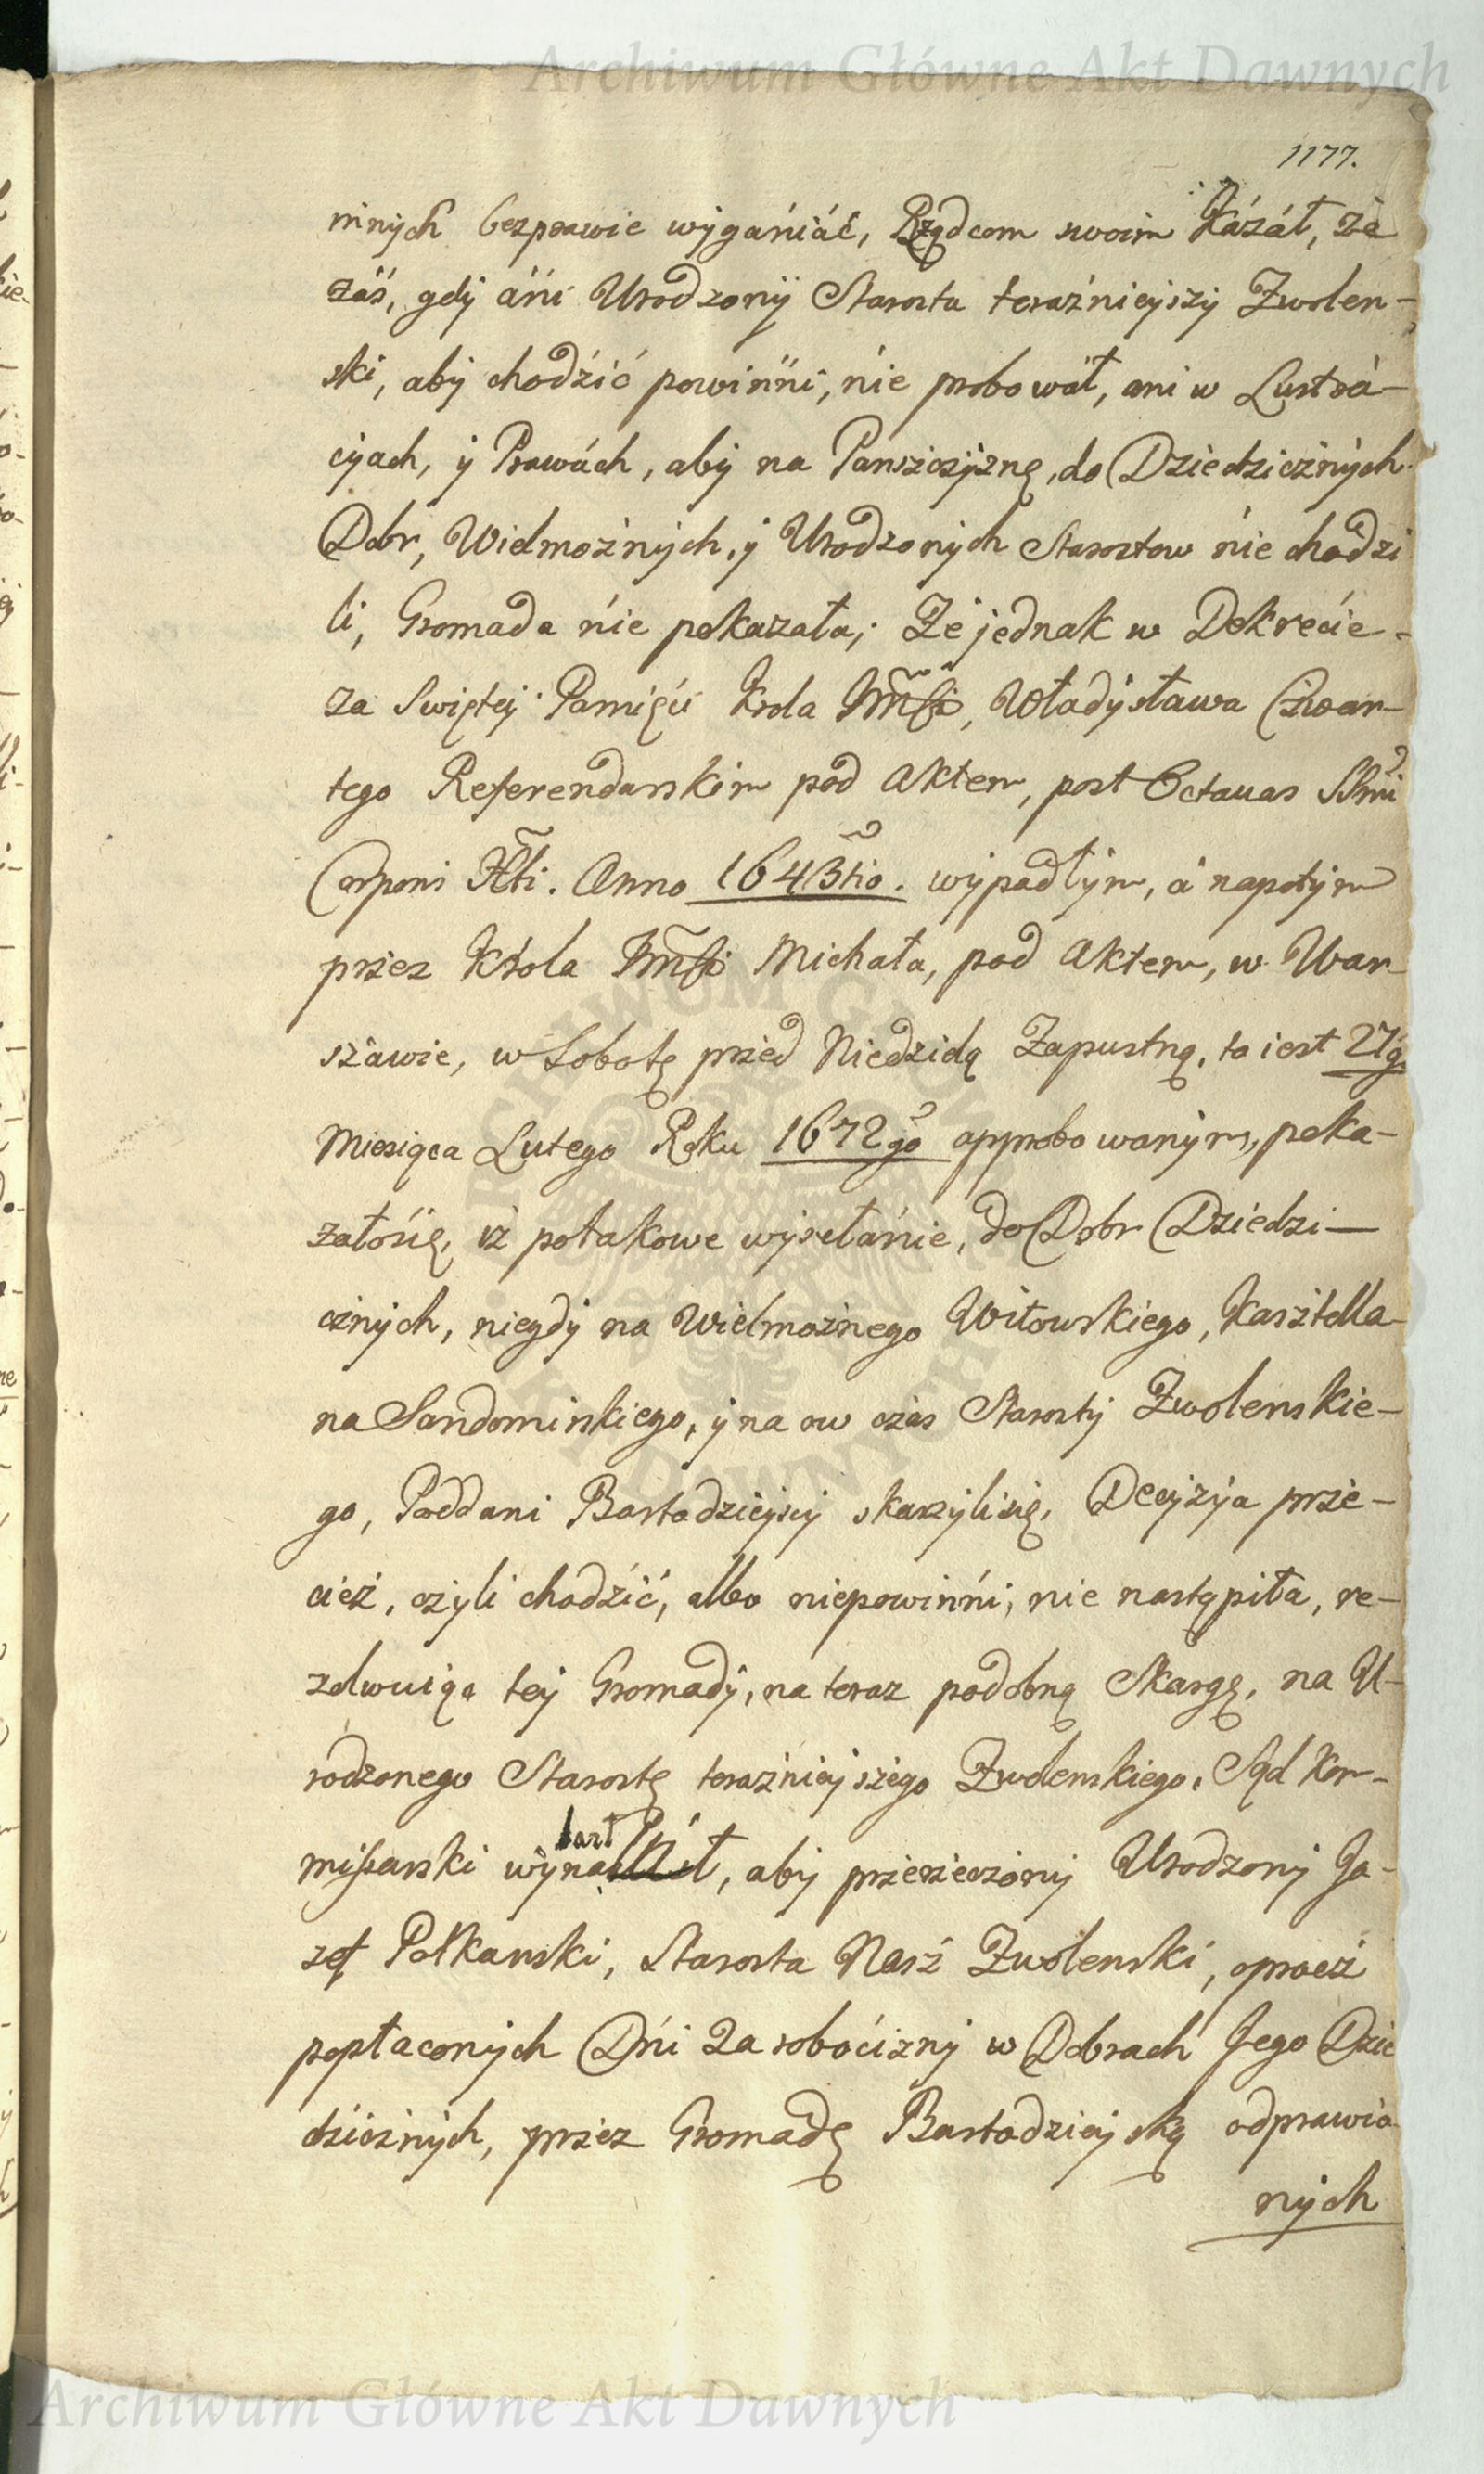 Archiwum Główne Akt Dawnych
1177.
nnych bezprawie wyganiáć, Rządcom swoim Kázáł, że
záś, gdy áni Urodzony Starosta teraźnieyszy Zwolen-
ski, aby chodźić powinni, nie probowáł, ani w Lustrá-
cyach, y Prawách, aby na Panszczyznę, do Dziedzicznych
Dobr, Wielmożnych, y Urodzonych Starostow nie chodzi
li, Gromada nie pokazała; Że jednak w Dekrećie
za Swiętey Pamięći Krola Jmśći, Władysława Czwar-
tego Referendarskim pod Aktem, post Octauas SSmi
Corporis Xti. Anno 1643tio. wypadłym, á napotym
przez Króla Jmśći Michała, pod Aktem, w War-
szawie, w Sobotę przed Niedzielą Zapustną, to iest 27g.
Miesiąca Lutego Roku 1672go approbowanym, poka-
załośię, iż potakowe wysełánie, do Dobr Dziedzi-
cznych, niegdy na Wielmożnego Witowskiego, Kasztella-
na Sandomirskiego, y na ow czas Starosty Zwolenskie-
go, Poddani Bartodzieyscy skarżylisię, Decyzya prze-
cież, czyli chodźić, albo niepowinni, nie nastąpiła, re-
zolwuiąc tey Gromady, na teraz podobną Skargę, na U-
rodzonego Starostę teraźnieyszego Zwolenskiego, Sąd Kom-
missarski wynalazł, aby przerzeczony Urodzony Jo-
zef Potkanski, Starosta Nasz Zwolenski, oprocz
popłaconych Dni za roboćizny w Dobrach Jego Dzie
dzicznych, przez Gromadę Bartodzieyską odprawio
nych
Archiwum Główne Akt Dawnych